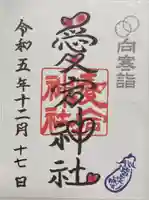 向寒詣
愛宕神社
令和五年十二月十七日